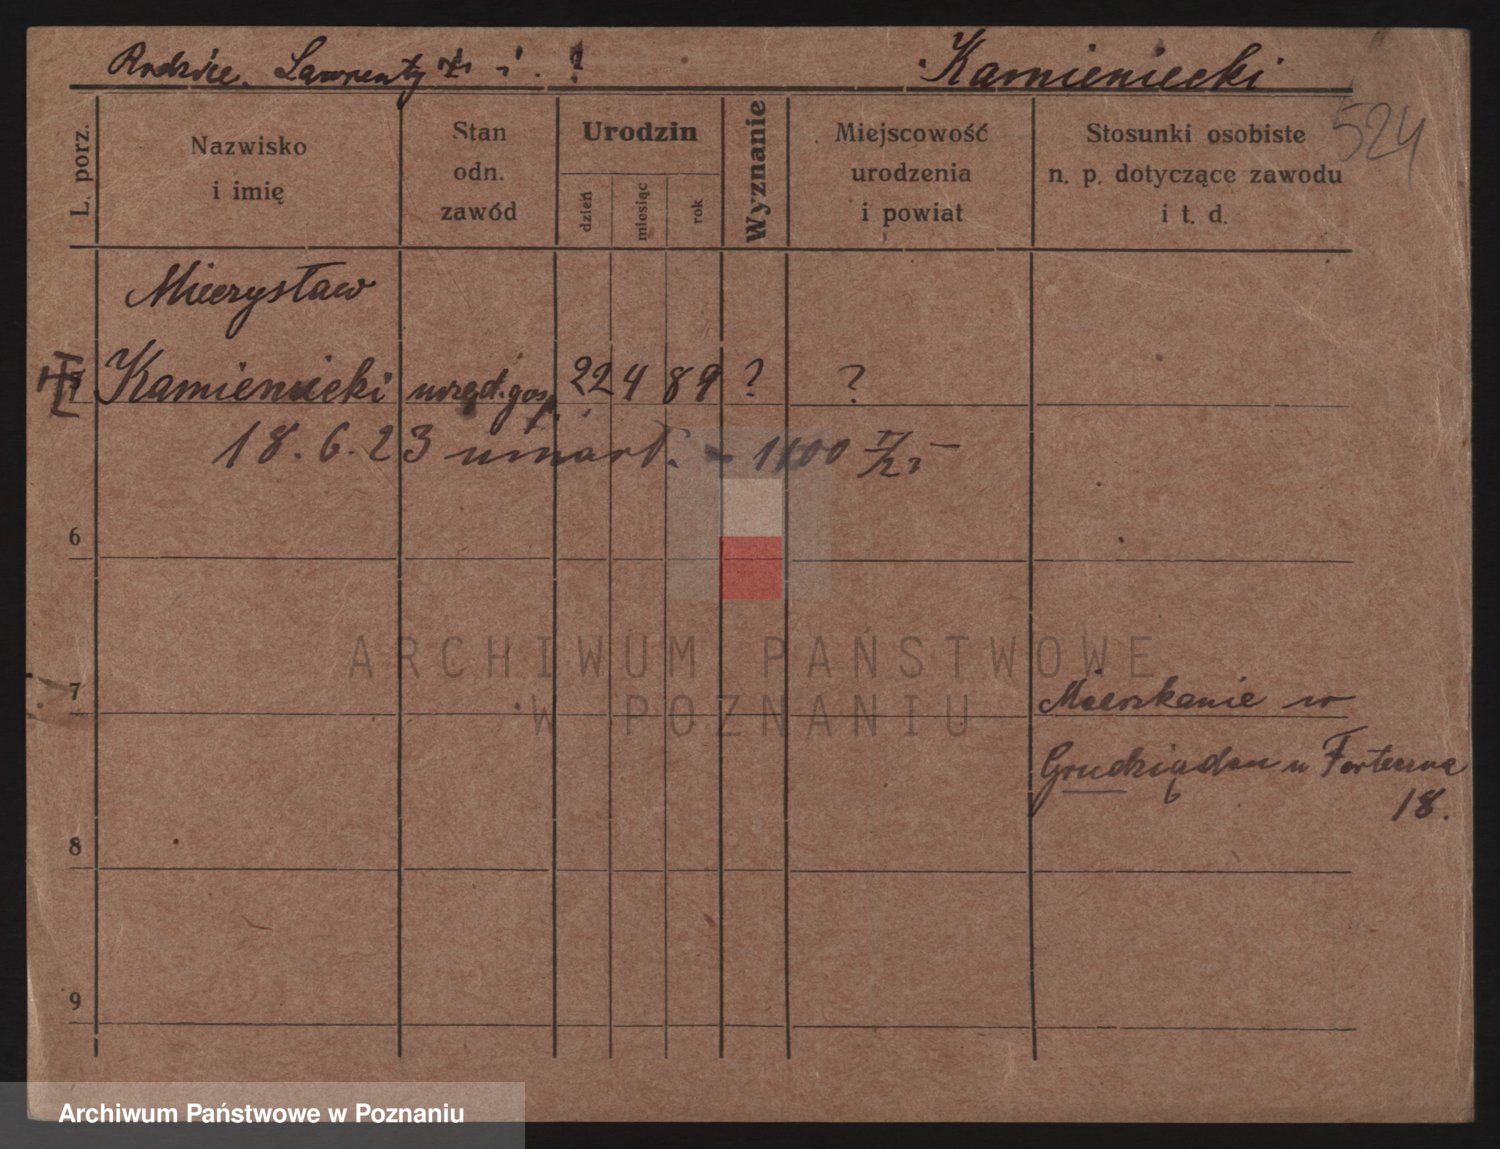 Rodzice. Lawrenty i ?
Kamieniecki
524
L. porz.
Nazwisko
i imię
Stan
odn.
zawód
Urodzin
dzień
miesiąc
rok
Wyznanie
Miejscowość
urodzenia
i powiat
Stosunki osobiste
n. p. dotyczące zawodu
i t. d.
Mieczysław
Kamieniecki urzęd. gosp. 22 4 89 ? ?
18. 6. 23 umarł. - 1100
6
7
Mieszkanie w
Grudziądzu u Forteczna
18.
8
9
ARCHIWUM PAŃSTWOWE
W POZNANIU
Archiwum Państwowe w Poznaniu